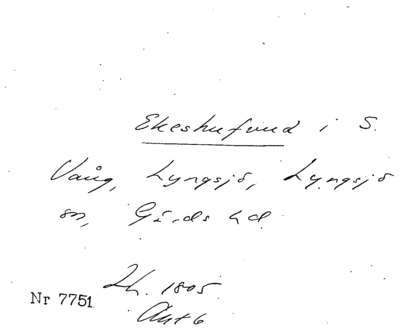 Ekeshufvud i S.
Vång, Lyngsjö, Lyngsjö
sn, Gärds hd.
Lh. 1805
Akt 6
Nr 7751